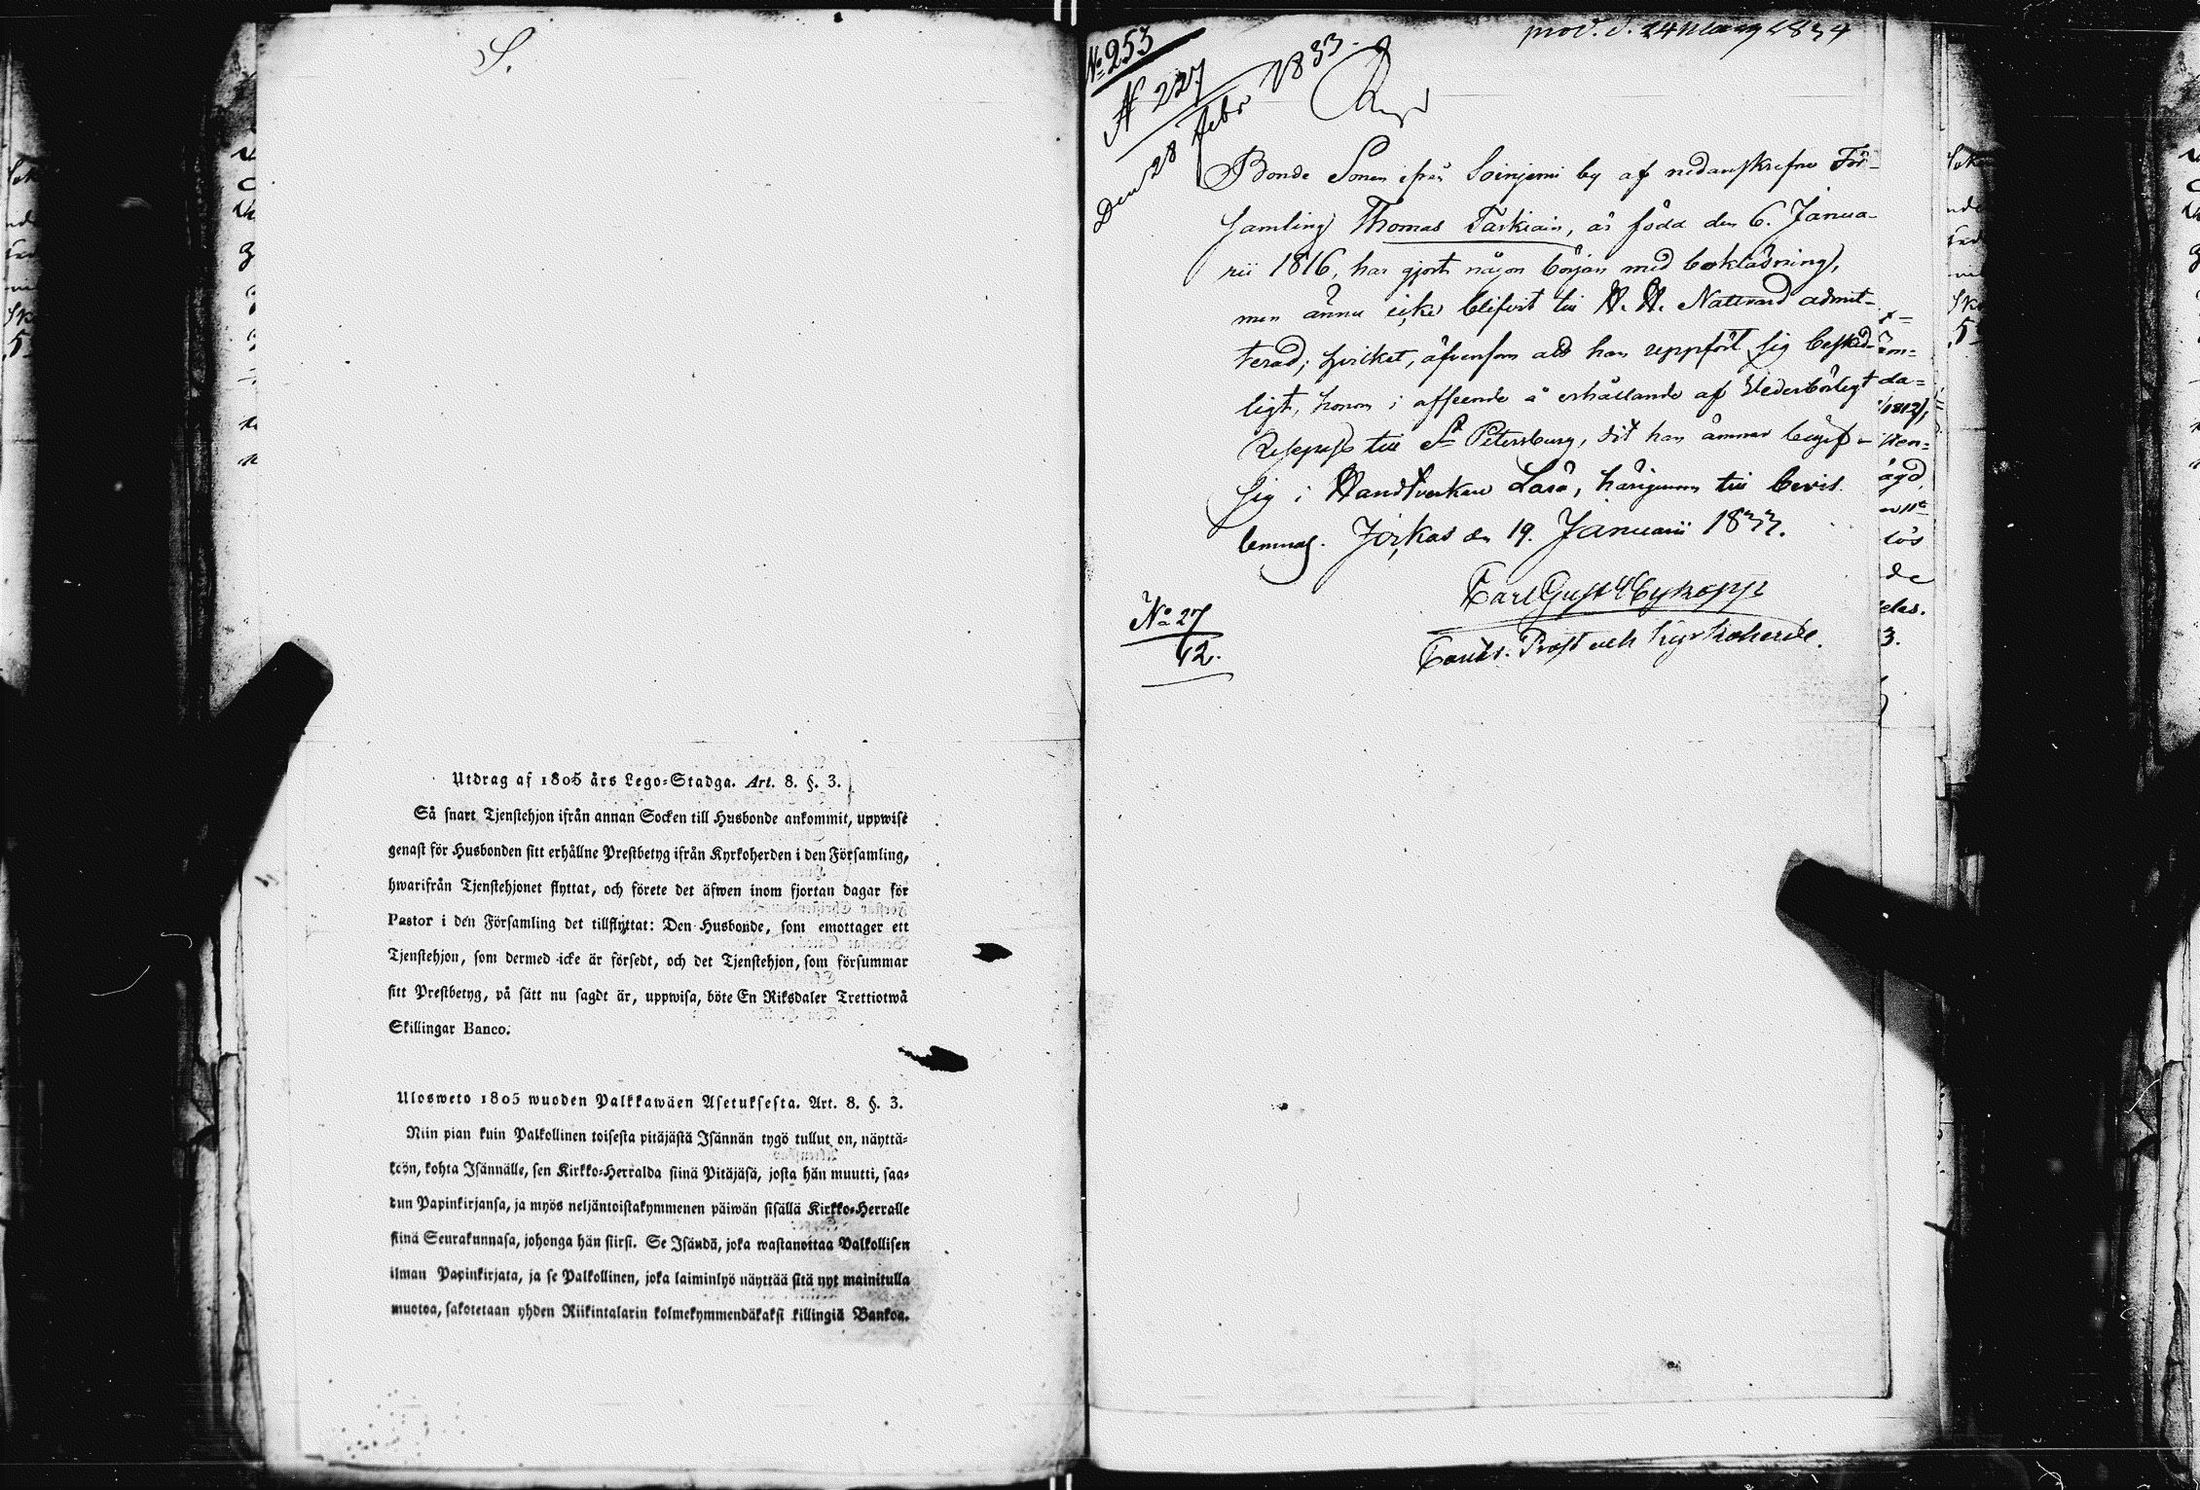 S.
Utdrag af 1805 års Lego-Stadga. Art. 8. §. 3.
Så snart Tjenstehjon ifrån annan Socken till Husbonde ankommit, uppwise
genast för Husbonden sitt erhållne Prestbetyg ifrån Kyrkoherden i den Församling,
hwarifrån Tjenstehjonet flyttat, och förete det äfwen inom fjortan dagar för
Pastor i den Församling det tillflyttat: Den Husbonde, som emottager ett
Tjenstehjon, som dermed icke är försedt, och det Tjenstehjon, som försummar
sitt Prestbetyg, på sätt nu sagdt är, uppwisa, böte En Riksdaler Trettiotwå
Skillingar Banco.
Ulosweto 1805 wuoden Palkkawäen Asetuksesta. Art. 8. §. 3.
Niin pian kuin Palkollinen toisesta pitäjästä Isännän tygö tullut on, näyttä-
köön, kohta Isännälle, sen Kirkko-Herralda siinä Pitäjäsä, josta hän muutti, saa-
dun Papinkirjansa, ja myös neljäntoistakymmenen päiwän sisällä Kirkko-Herralle
siinä Seurakunnasa, johonga hän siirsi. Se Isändä, joka wastanottaa Palkollisen
ilman Papinkirjata, ja se Palkollinen, joka laiminlyö näyttää sitä nyt mainitulla
muotoa, sakotetaan yhden Riikintalarin kolmekymmendäkaksi killingiä Bankoa.
No 253
N 227
Den 28 Febr 1833.
Bonde Sonen ifrån Soinjemi by af nedanskrefne För-
samling Thomas Tarkiain, är född den 6. Janua-
rii 1816, har gjort någon början med bokläsning,
men ännu icke blifvit till H. H. Nattvard admit-
terad; hvilket, äfvensom att han uppfört sig besked-
ligt, honom i afseende å erhållande af Vederbörligt
Respass till St Petersburg, dit han ämnar begif-
sig i Handtverkare Lära, härigenom till bevis
lemnas. Jorkas den 19. Januarii 1833.
Carl Gust
Prost och Kyrkoherde.
No 27
12.